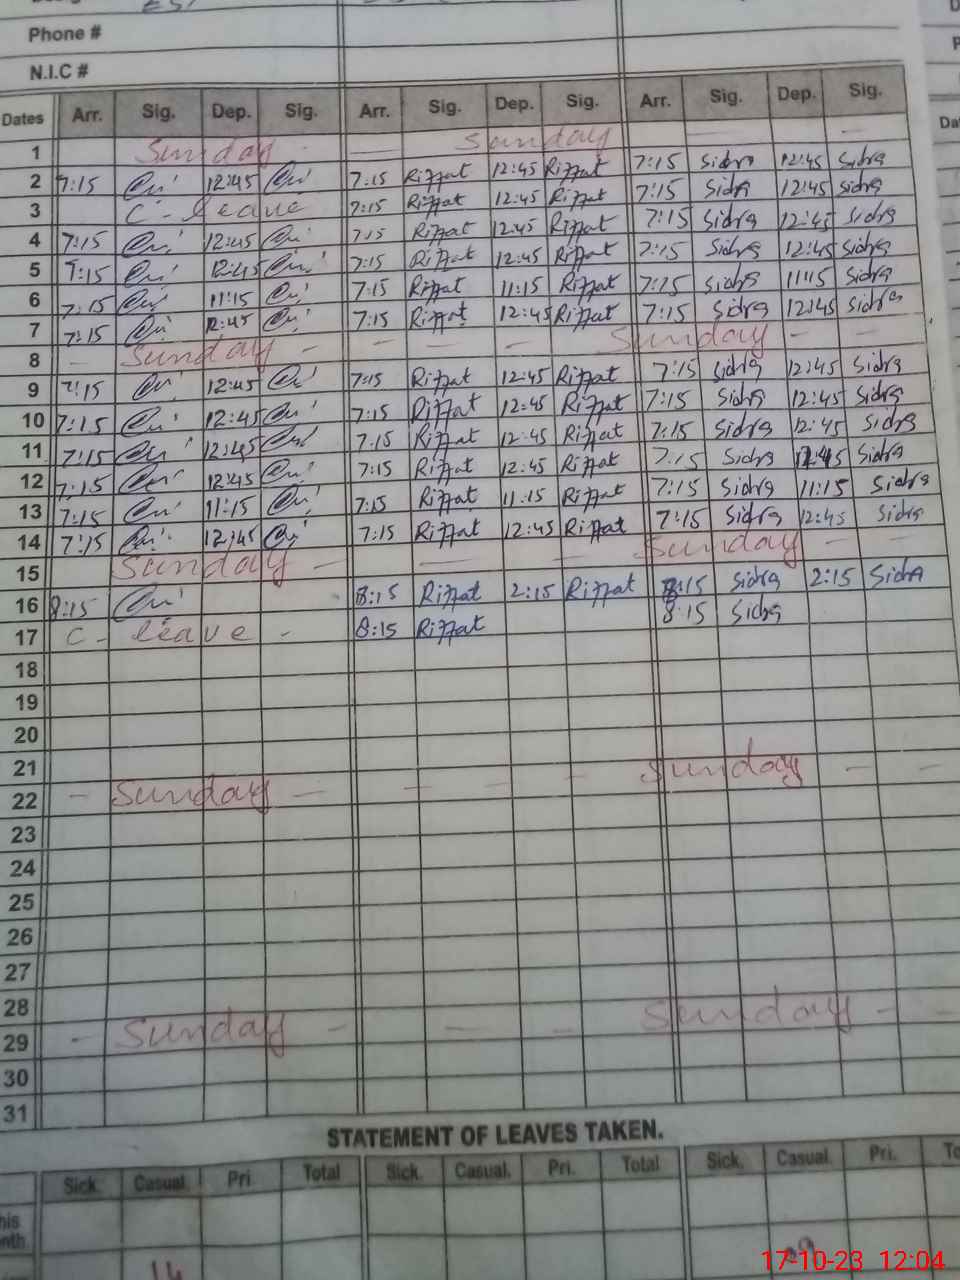 Phone #
N.I.C #
Dates Arr. Sig. Dep. Sig. Arr. Sig. Dep. Sig. Arr. Sig. Dep. Sig.
1 Sunday - — Sunday — — —
2 7:15 12:45 7:15 Riffat 12:45 Riffat 7:15 Sidra 12:45 Sidra
3 C - leave 7:15 Riffat 12:45 Riffat 7:15 Sidra 12:45 Sidra
4 7:15 12:45 7:15 Riffat 12:45 Riffat 7:15 Sidra 12:45 Sidra
5 7:15 12:45 7:15 Riffat 12:45 Riffat 7:15 Sidra 12:45 Sidra
6 7:15 11:15 7:15 Riffat 11:15 Riffat 7:15 Sidra 11:15 Sidra
7 7:15 12:45 7:15 Riffat 12:45 Riffat 7:15 Sidra 12:45 Sidra
8 - Sunday - - — — Sunday - —
9 7:15 12:45 7:15 Riffat 12:45 Riffat 7:15 Sidra 12:45 Sidra
10 7:15 12:45 7:15 Riffat 12:45 Riffat 7:15 Sidra 12:45 Sidra
11 7:15 12:45 7:15 Riffat 12:45 Riffat 7:15 Sidra 12:45 Sidra
12 7:15 12:45 7:15 Riffat 12:45 Riffat 7:15 Sidra 12:45 Sidra
13 7:15 11:15 7:15 Riffat 11:15 Riffat 7:15 Sidra 11:15 Sidra
14 7:15 12:45 7:15 Riffat 12:45 Riffat 7:15 Sidra 12:45 Sidra
15 Sunday - — — - Sunday - -
16 8:15 8:15 Riffat 2:15 Riffat 8:15 Sidra 2:15 Sidra
17 C - leave - 8:15 Riffat 8:15 Sidra
18
19
20
21
22 - Sunday - - - - Sunday - -
23
24
25
26
27
28
29 - Sunday - - - Sunday - -
30
31
STATEMENT OF LEAVES TAKEN.
Sick. Casual. Pri Total Sick. Casual. Pri. Total Sick. Casual. Pri. To
his
nth.
14
17-10-23 12:04